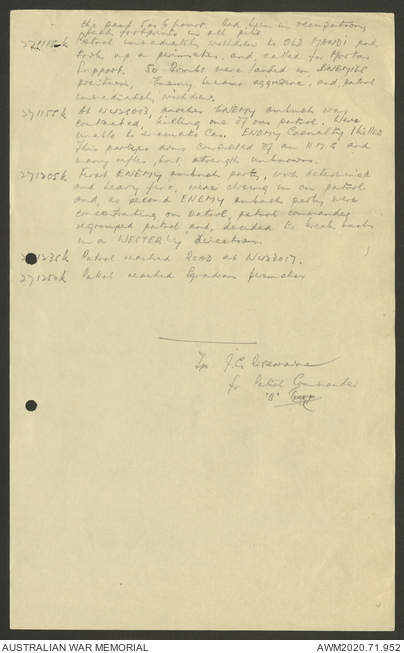 the past 5 or 6 hours. Had been in occupation,
fresh footprints in all pits.
271115k Patrol immediately withdrew to OLD MANDI and
took up a perimeter, and called for Mortar
Support. 50 Bombs were landed in ENEMIES
position, Enemy became aggressive, and patrol
immediately withdrew.
271155k At NW2301, another ENEMY ambush was
contacted, killing one of our patrol. Were
unable to evacuate Cas. ENEMY Casualty 1 killed
This party's arms consisted of an H.M.G and
many rifles, but strength unknown.
271205k First ENEMY ambush party, with determined
and heavy fire, were closing in on patrol
and, as second ENEMY ambush party, were
concentrating on patrol, patrol commander
regrouped patrol and, decided to break
in a WESTERLY direction.
271235k Patrol reached ROAD at NW23017.
271250k Patrol reached Squadron perimeter
Tpr J.C.
for Patrol Commander
"B" Troop
AUSTRALIAN WAR MEMORIAL
AWM2020.71.952